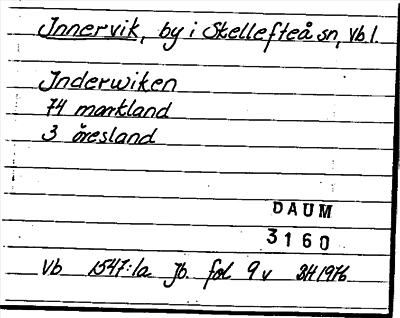 Innervik, by i Skellefteå sn, Vb l.
Inderwiken
74 markland
3 öresland
DAUM
3160
Vb 1547:1a Jb. fol 9 v 3/4 1976